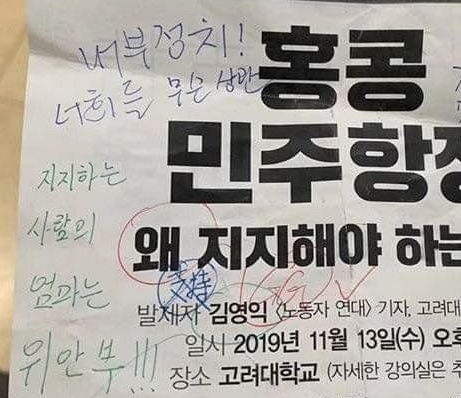 내부정치!
너희들 무슨 상관
홍콩
민주항
왜 지지해야 하는
支持
발제자 김영익 〈노동자 연대〉 기자, 고려대
일시 2019년 11월 13일(수) 오후
장소 고려대학교 (자세한 강의실은 추
지지하는
사람의
엄마는
위안부!!!